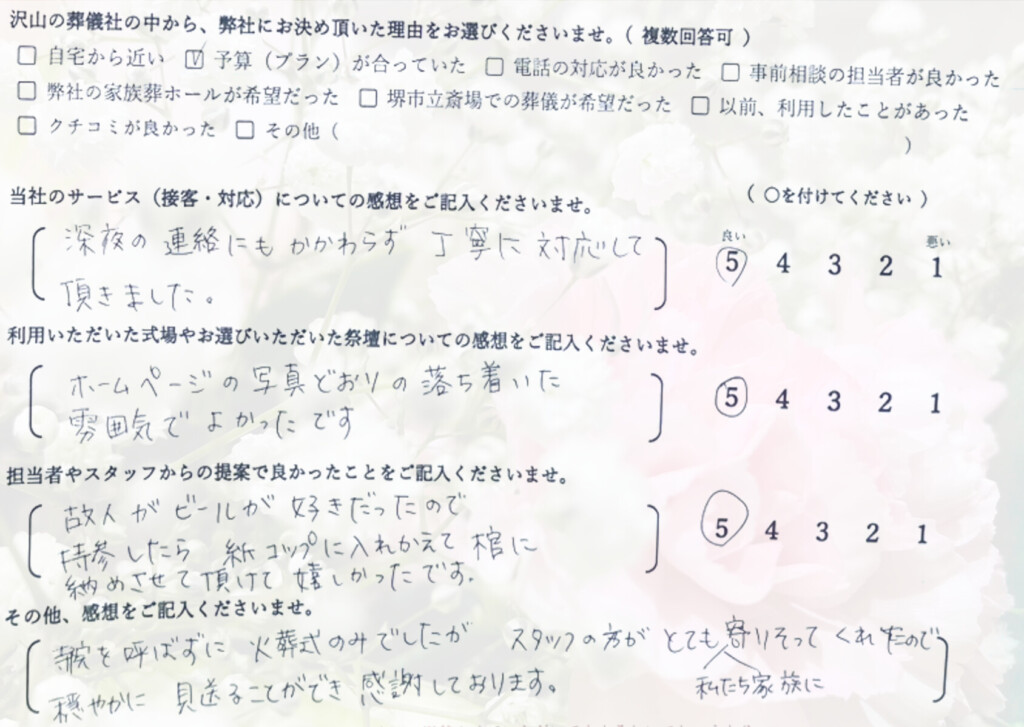 沢山の葬儀社の中から、弊社にお決め頂いた理由をお選びくださいませ。（ 複数回答可 ）
☐ 自宅から近い ☑ 予算（プラン）が合っていた ☐ 電話の対応が良かった ☐ 事前相談の担当者が良かった
☐ 弊社の家族葬ホールが希望だった ☐ 堺市立斎場での葬儀が希望だった ☐ 以前、利用したことがあった
☐ クチコミが良かった ☐ その他（ ）
当社のサービス（接客・対応）についての感想をご記入くださいませ。 （ ○を付けてください ）
深夜の連絡にもかかわらず 丁寧に対応して
頂きました。
良い 悪い
5 4 3 2 1
利用いただいた式場やお選びいただいた祭壇についての感想をご記入くださいませ。
ホームページの写真どおりの落ち着いた
雰囲気でよかったです
5 4 3 2 1
担当者やスタッフからの提案で良かったことをご記入くださいませ。
故人がビールが好きだったので
持参したら 紙コップに入れかえて棺に
納めさせて頂けて嬉しかったです.
5 4 3 2 1
その他、感想をご記入くださいませ。
を呼ばずに 火葬式のみでしたが スタッフの方が とても寄りそってくれたので
私たち家族に
穏やかに 見送ることができ 感謝しております。